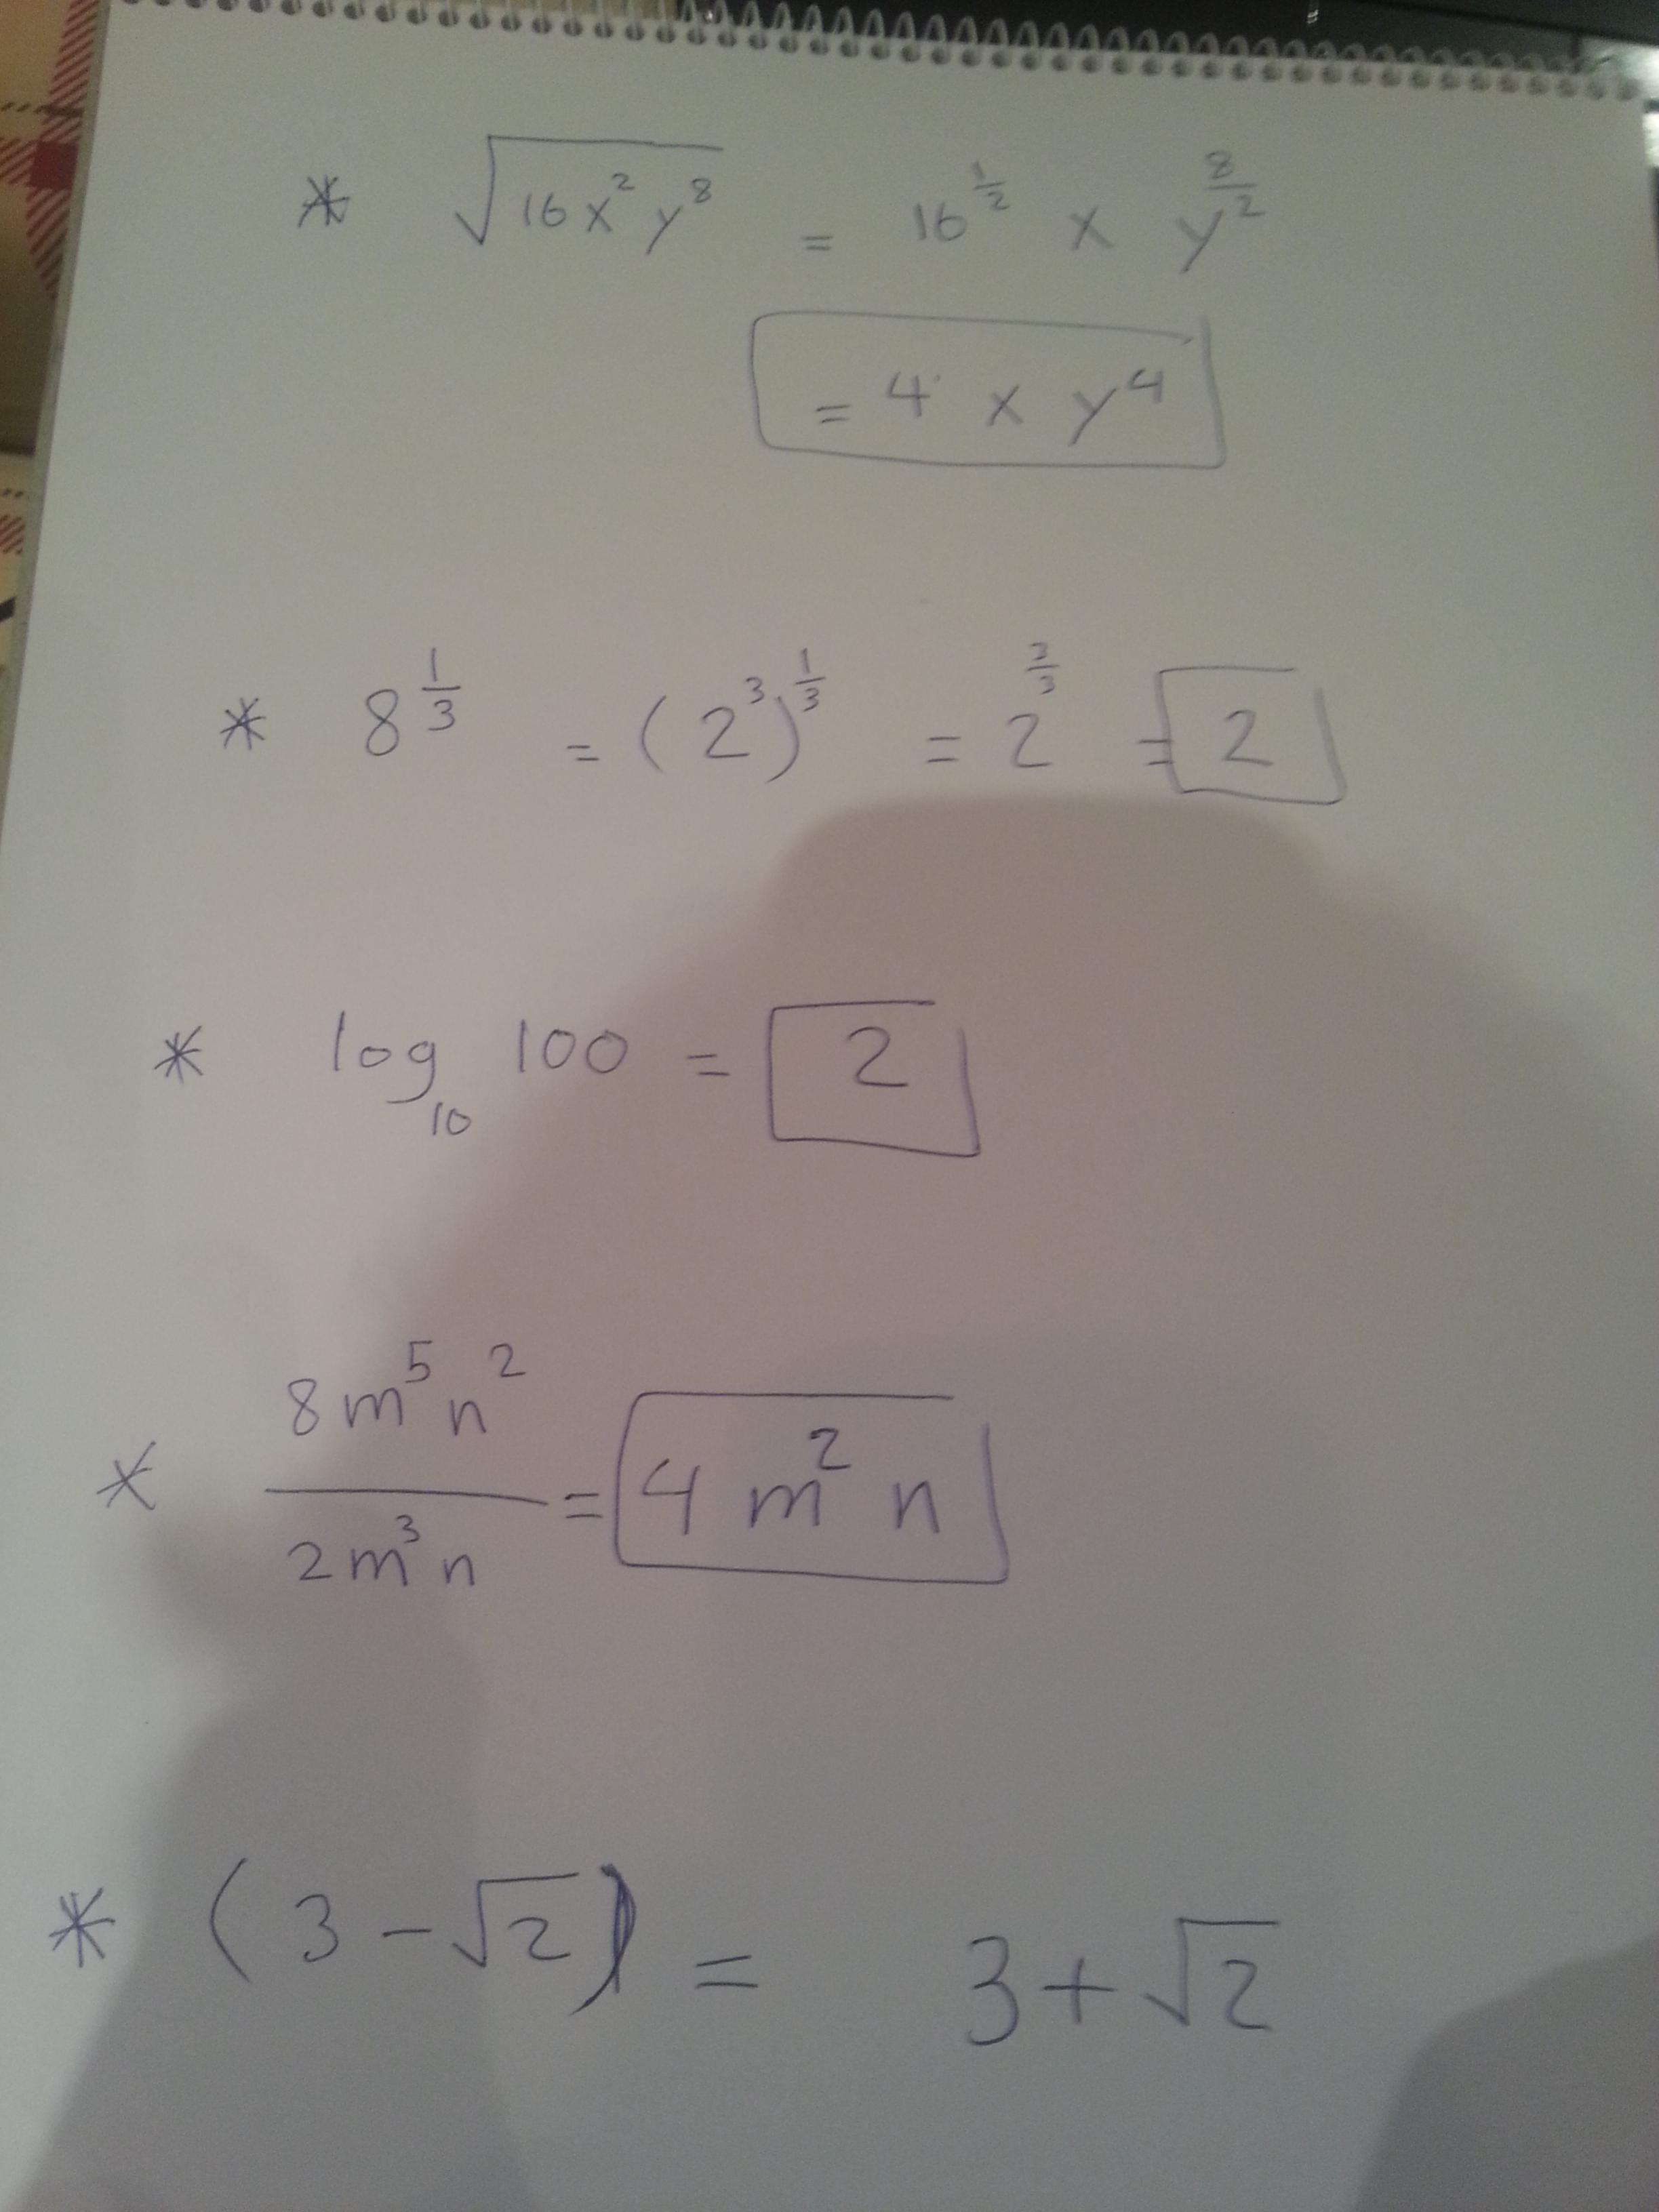 * √(16x²y⁸) = 16^(1/2) x y^(8/2)
= 4 x y⁴
* 8^(1/3) = (2³)^(1/3) = 2^(3/3) = 2
* log₁₀ 100 = 2
* 8m⁵n² / 2m³n = 4 m² n
* (3 - √2) = 3 + √2